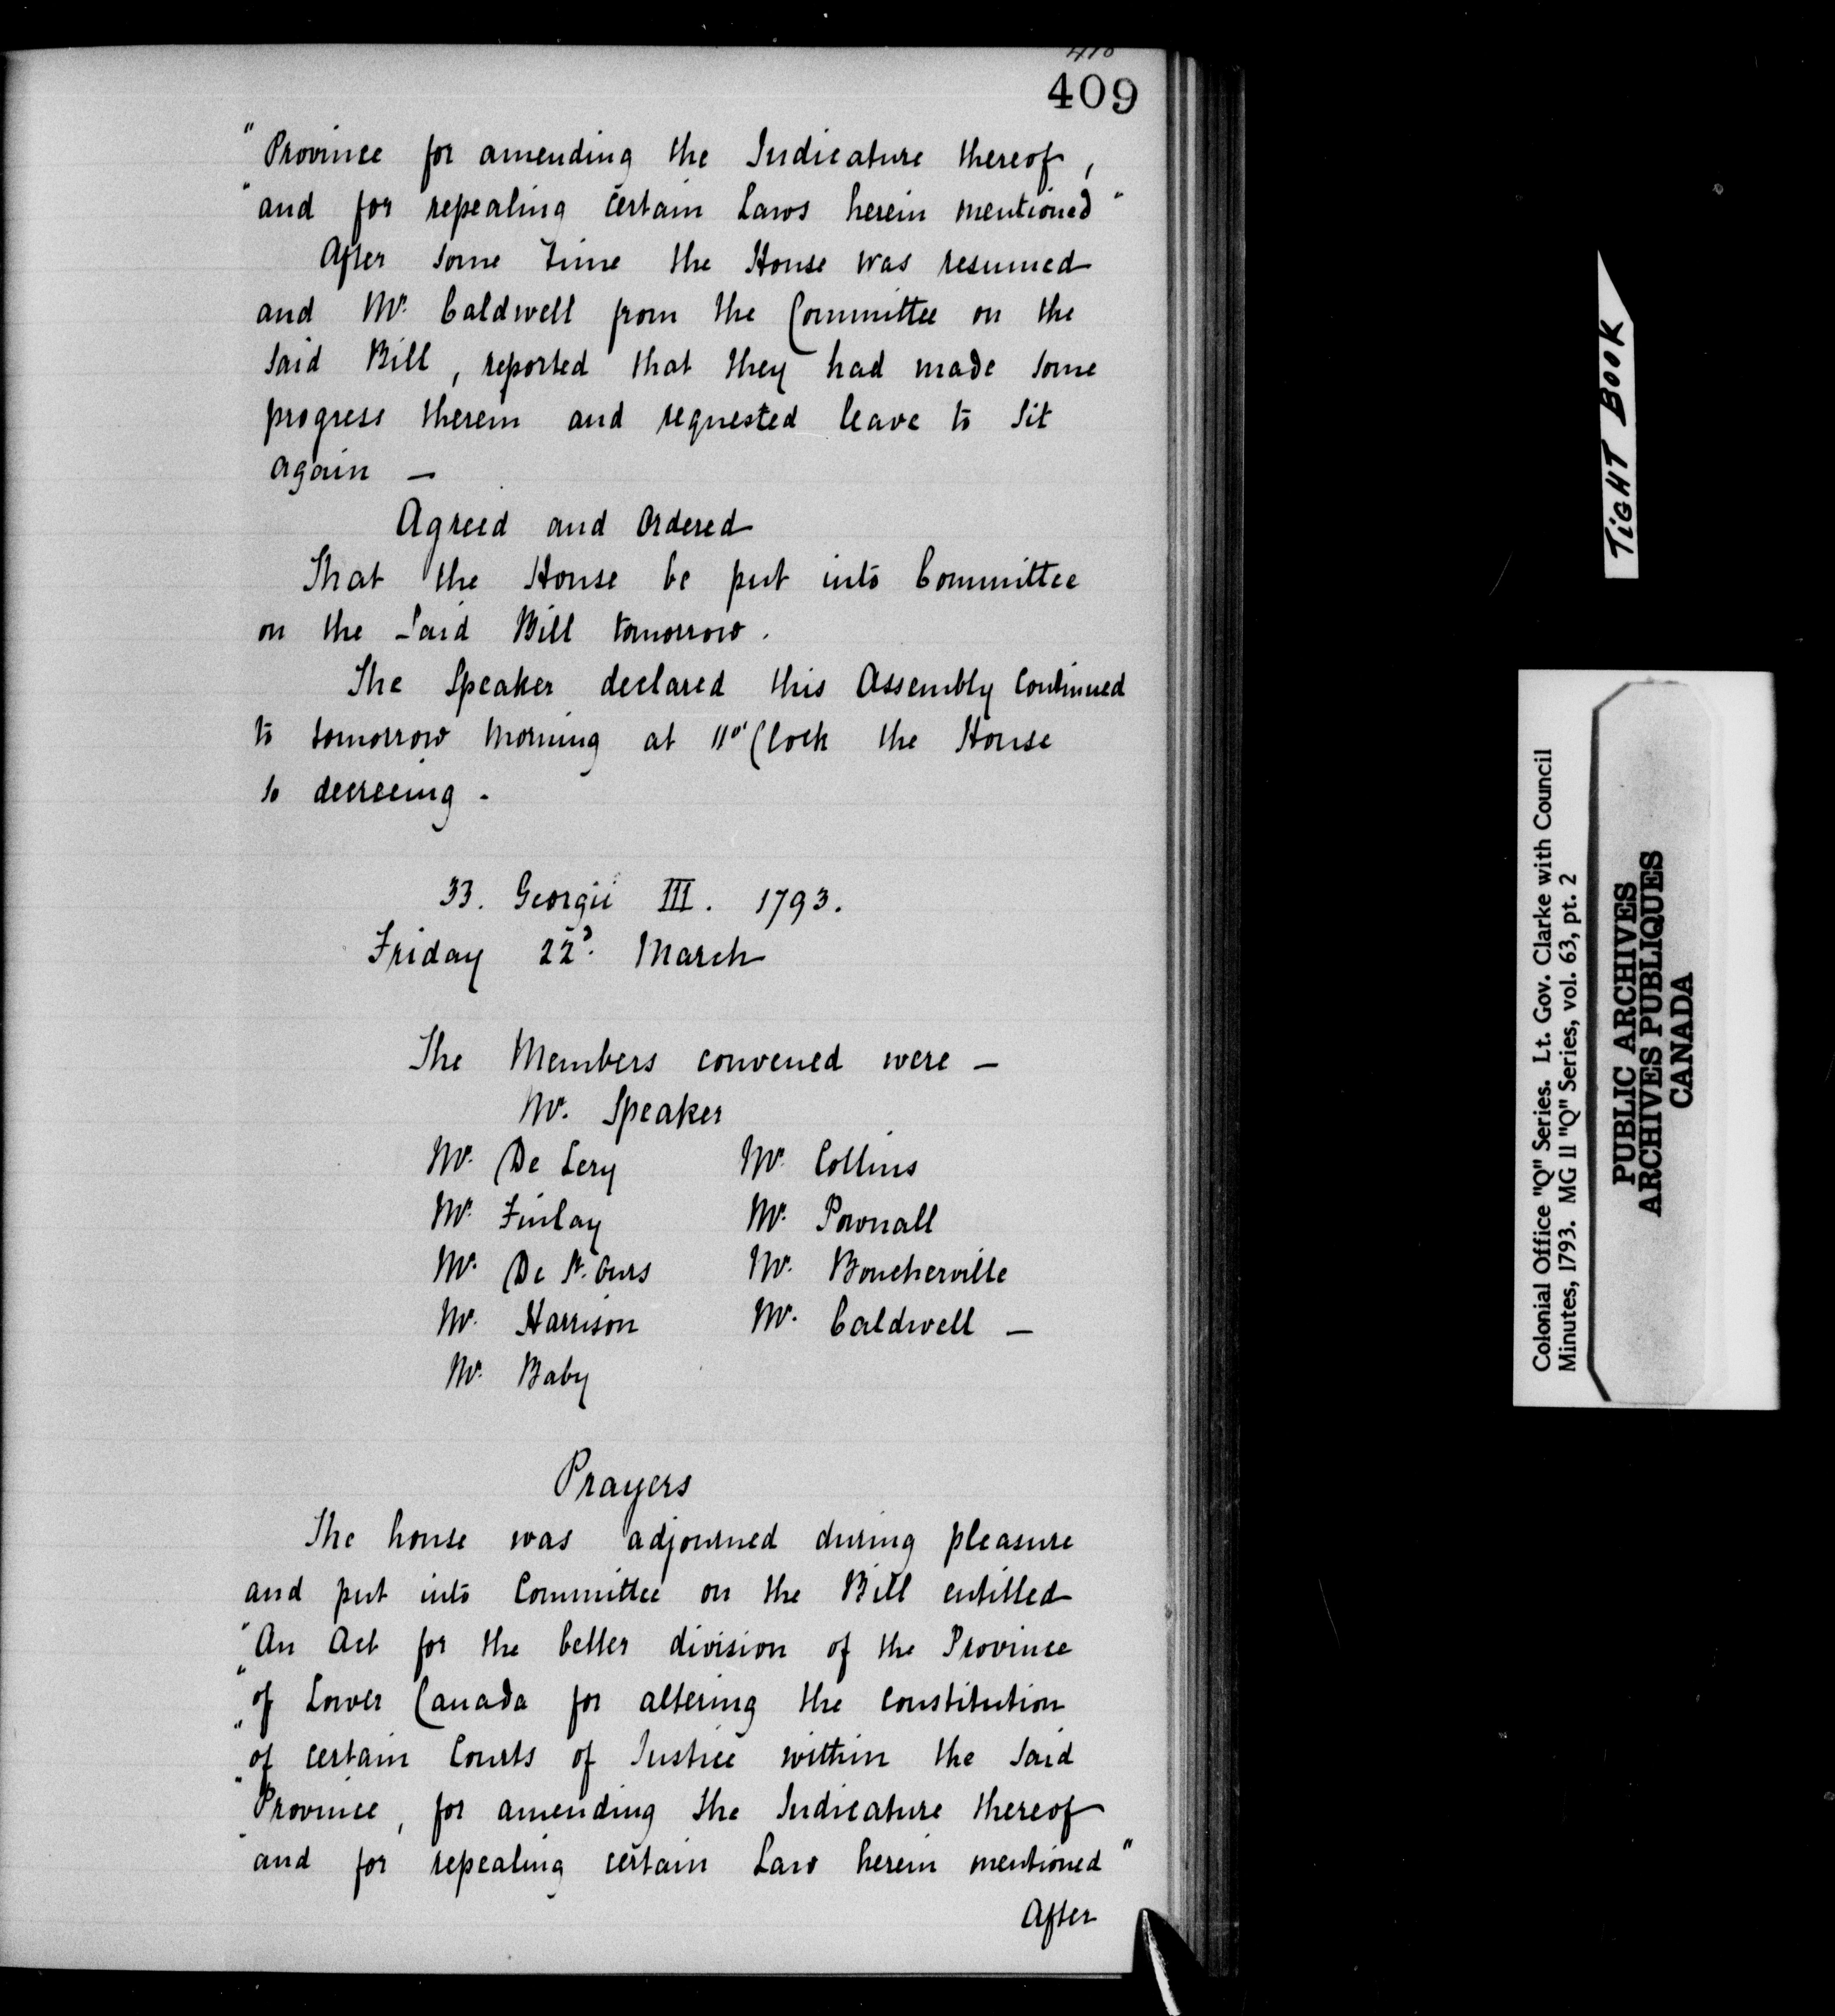 410
409
"Province for amending the Judicature thereof,
"and for repealing certain Laws herein mentioned"
After some time the House was resumed
and Mr. Caldwell from the Committee on the
said Bill, reported that they had made some
progress therein and requested leave to sit
again —
Agreed and Ordered
That the House be put into Committee
on the Said Bill tomorrow.
The Speaker declared this Assembly Continued
to tomorrow morning at 11 o'Clock the House
so decreeing.
33. Georgii III. 1793.
Friday 22d. March
The Members convened were —
Mr. Speaker
Mr. De Lery Mr. Collins
Mr. Finlay Mr. Pownall
Mr. De St. Ours Mr. Boucherville
Mr. Harrison Mr. Caldwell —
Mr. Baby
Prayers
The house was adjourned during pleasure
and put into Committee on the Bill entitled
"An Act for the better division of the Province
"of Lower Canada for altering the constitution
"of certain Courts of Justice within the said
"Province, for amending the Judicature thereof
"and for repealing certain Law herein mentioned"
After
TIGHT BOOK
Colonial Office "Q" Series. Lt. Gov. Clarke with Council
Minutes, 1793. MG 11 "Q" Series, vol. 63, pt. 2
PUBLIC ARCHIVES
ARCHIVES PUBLIQUES
CANADA